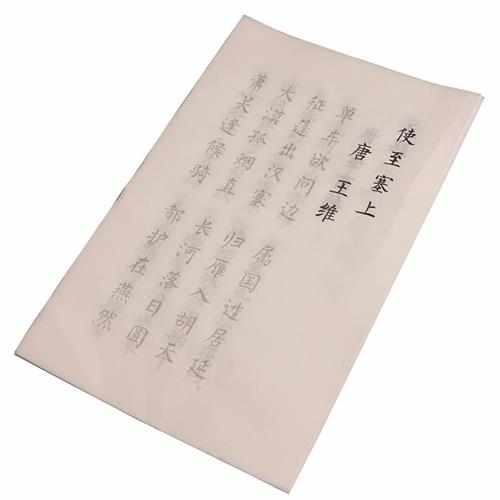 使至塞上
唐 王维
单车欲问边 属国过居延
征蓬出汉塞 归雁入胡天
大漠孤烟直 长河落日圆
萧关逢候骑 都护在燕然